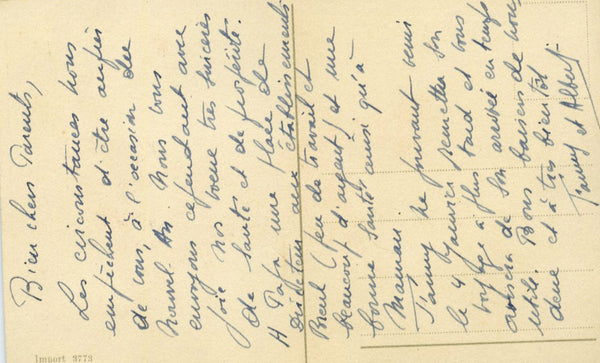 Bien chers Parents,
Les circonstances nous
empêchent d'être auprès
de vous, à l'occasion du
Nouvel-An. Nous vous
envoyons cependant avec
joie nos voeux très sincères
de santé et de prospérité.
A Papa une place de
Directeur aux établissements
Breuil (peu de travail et
beaucoup d'argent) et une
bonne santé ainsi qu'à
Maman.
Fanny ne pouvant venir
le 4 Janvier remettra son
voyage à plus tard et vous
avisera de son arrivée en temps
utile. Bons baisers de nous
deux et à très bientôt
Fanny et Albert
Import 3773